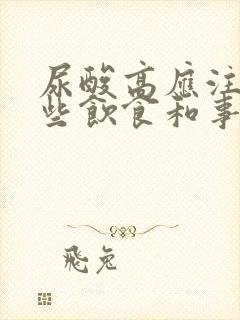 尿酸高應注
些飲食和事
飛兔